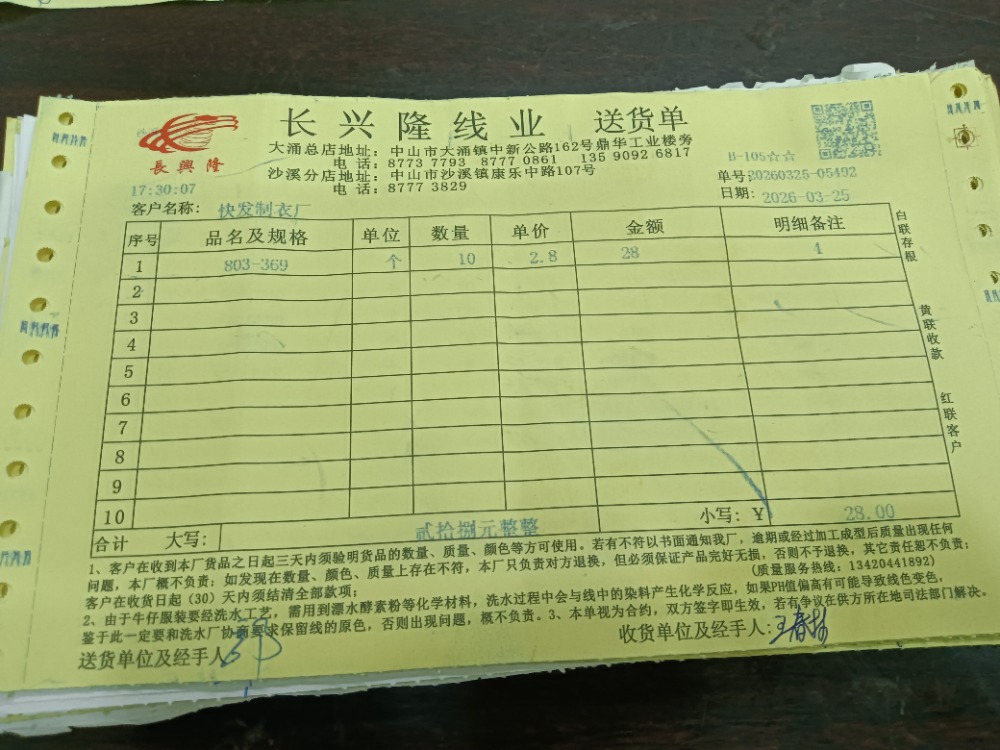 长兴隆线业 送货单
長興隆
大涌总店地址：中山市大涌镇中新公路162号鼎华工业楼旁
电话：8773 7793 8777 0861 135 9092 6817
沙溪分店地址：中山市沙溪镇康乐中路107号
电话：8777 3829
B-105☆☆
单号:20260325-05492
日期: 2026-03-25
17:30:07
客户名称: 快发制衣厂
序号 品名及规格 单位 数量 单价 金额 明细备注
1 803-369 个 10 2.8 28 4
2
3
4
5
6
7
8
9
10
合计 大写: 贰拾捌元整整 小写: ¥ 28.00
白联存根
黄联收款
红联客户
1、客户在收到本厂货品之日起三天内须验明货品的数量、质量、颜色等方可使用。若有不符以书面通知我厂，逾期或经过加工成型后质量出现任何
问题，本厂概不负责；如发现在数量、颜色、质量上存在不符，本厂只负责对方退换，但必须保证产品完好无损，否则不予退换，其它责任恕不负责；
客户在收货日起（30）天内须结清全部款项； (质量服务热线：13420441892)
2、由于牛仔服装要经洗水工艺，需用到漂水酵素粉等化学材料，洗水过程中会与线中的染料产生化学反应，如果PH值偏高有可能导致线色变色，
鉴于此一定要和洗水厂协商要求保留线的原色，否则出现问题，概不负责。3、本单视为合约，双方签字即生效，若有争议在供方所在地司法部门解决。
送货单位及经手人
收货单位及经手人: 王春树